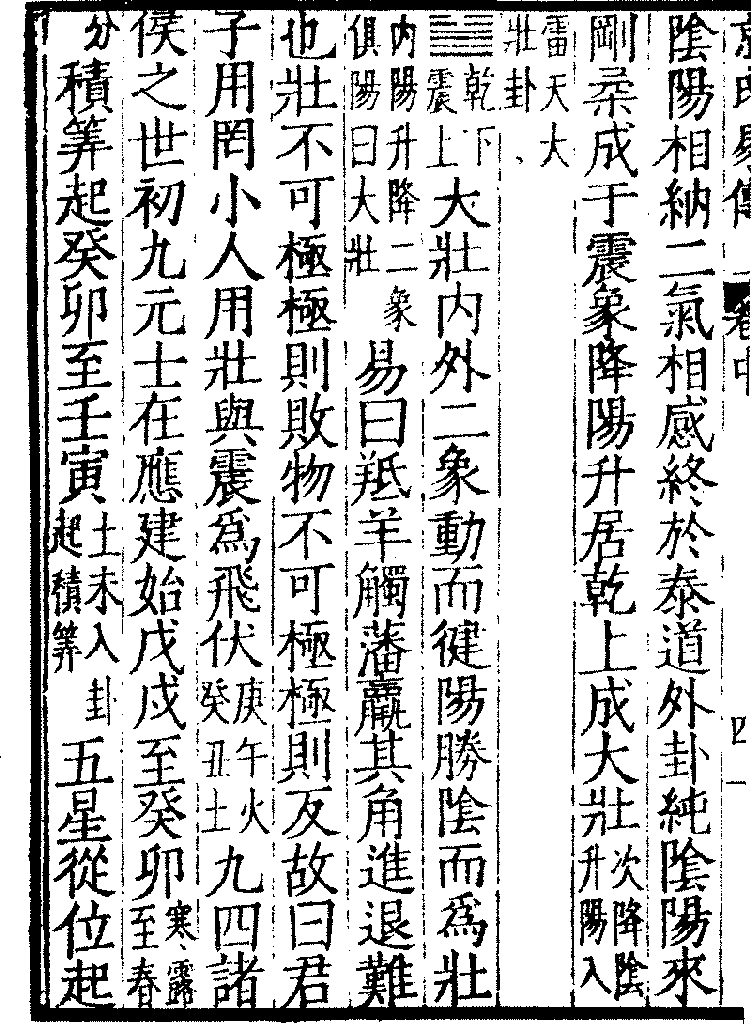 京氏易傳 卷中 四一
陰陽相納二氣相感終於泰道外卦純陰陽來
剛柔成于震象降陽升居乾上成大壯次降陰升陽入
雷天大壯卦、
䷡乾下震上大壯內外二象動而健陽勝陰而為壯
內陽升降二象俱陽曰大壯易曰羝羊觸藩羸其角進退難
也壯不可極極則敗物不可極極則反故曰君
子用罔小人用壯與震為飛伏庚午火癸丑土九四諸
侯之世初九元士在應建始戊戌至癸卯寒露至春
分積筭起癸卯至壬寅土未入卦起積筭五星從位起